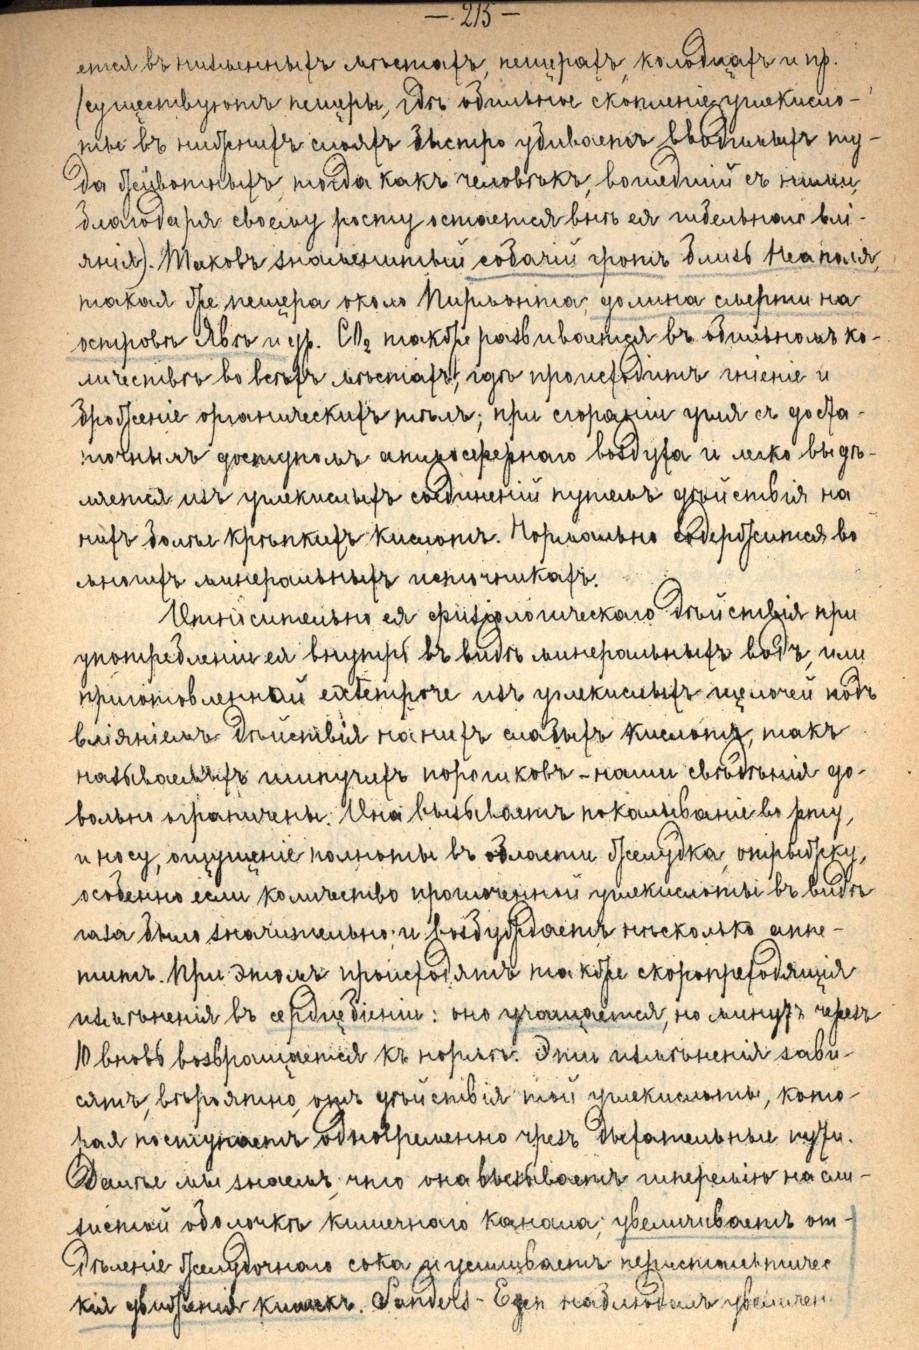 — 215 —
ется въ низменныхъ мѣстахъ, пещерахъ, колодцахъ и пр.
(существуютъ пещеры, гдѣ обильное скопленіе углекисло-
ты въ нижнихъ слояхъ быстро убиваетъ вводимыхъ ту-
да животныхъ, тогда какъ человѣкъ, вошедшій съ ними,
благодаря своему росту остается внѣ ея гибельнаго влі-
янія). Таковъ знаменитый собачій гротъ близь Неаполя,
такая же пещера около Пирмонта, долина смерти на
островѣ Явѣ и др. CO₂ также развивается въ обильномъ ко-
личествѣ во всѣхъ мѣстахъ, гдѣ происходитъ гніеніе и
броженіе органическихъ тѣлъ; при сгораніи угля съ доста-
точнымъ доступомъ атмосфернаго воздуха и легко выдѣ-
ляется изъ углекислыхъ соединеній путемъ дѣйствія на
нихъ болѣе крѣпкихъ кислотъ. Нормально содержится во
многихъ минеральныхъ источникахъ.
Относительно ея физіологическаго дѣйствія при
употребленіи ея внутрь въ видѣ минеральныхъ водъ, или
приготовленной extempore изъ углекислыхъ щелочей подъ
вліяніемъ дѣйствія на нихъ слабыхъ кислотъ, такъ
называемыхъ шипучихъ порошковъ – наши свѣдѣнія до-
вольно ограничены. Она вызываетъ покалываніе во рту,
и носу, ощущеніе полноты въ области желудка, отрыжку,
особенно если количество проглоченной углекислоты въ видѣ
газа было значительно; и возбуждаетъ нѣсколько аппе-
титъ. При этомъ происходятъ также скоропреходящія
измѣненія въ сердцебіеніи: оно учащается, но минутъ черезъ
10 вновь возвращается къ нормѣ. Эти измѣненія зави-
сятъ, вѣроятно, отъ дѣйствія той углекислоты, кото-
рая поступаетъ одновременно чрезъ дыхательные пути.
Далѣе мы знаемъ, что она вызываетъ гиперемію на сли-
зистой оболочкѣ кишечнаго канала, увеличиваетъ от-
дѣленіе желудочнаго сока и усиливаетъ перистальтичес
кія движенія кишекъ. Sanders-Ezn наблюдалъ увеличен